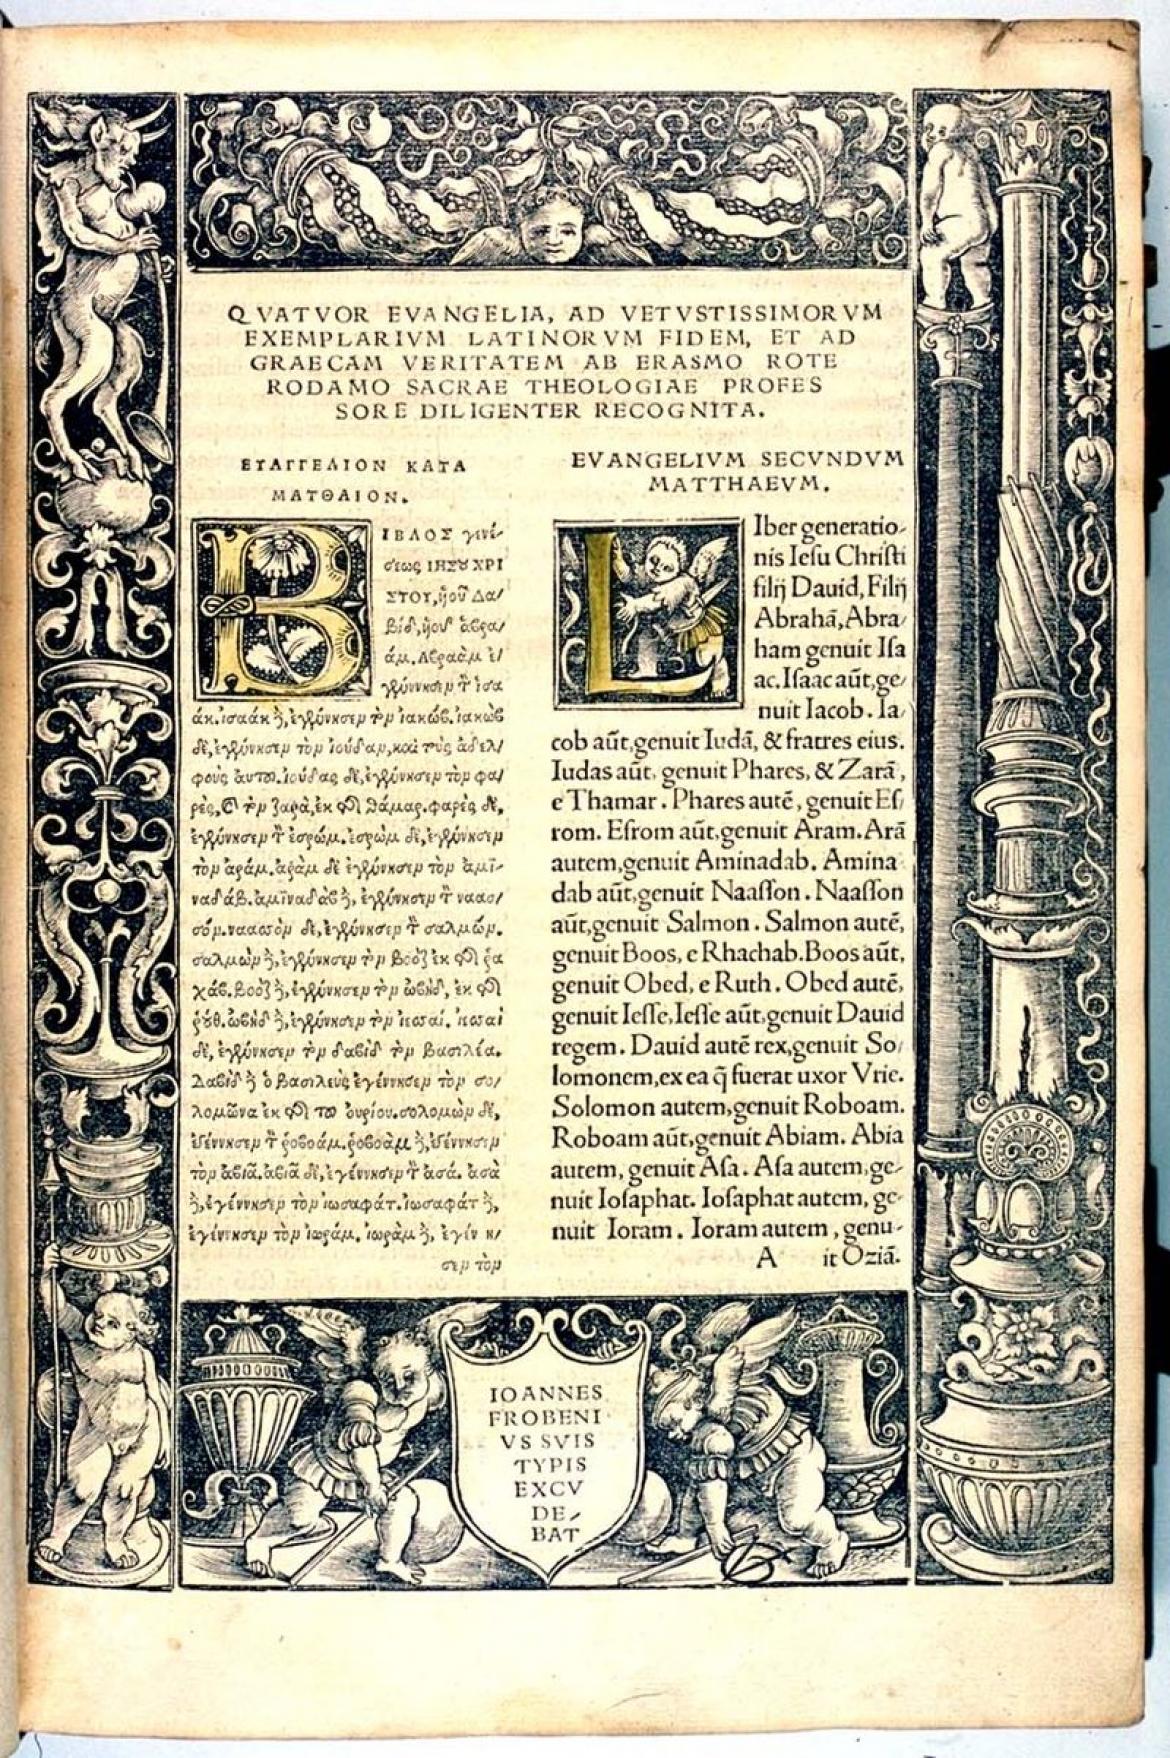 QVATVOR EVANGELIA, AD VETVSTISSIMORVM
EXEMPLARIVM LATINORVM FIDEM, ET AD
GRAECAM VERITATEM AB ERASMO ROTE
RODAMO SACRAE THEOLOGIAE PROFES
SORE DILIGENTER RECOGNITA.
ΕΥΑΓΓΕΛΙΟΝ ΚΑΤΑ
ΜΑΤΘΑΙΟΝ.
ΒΙΒΛΟΣ γενέ-
σεως ΙΗΣȢ ΧΡΙ
ΣΤΟΥ, ὑοῦ Δα/
βίδ, ὑοῦ ἀβρα/
άμ. Αβραὰμ ἐ/
γέννησεν τ̀ ἰσα
άκ. ἰσαάκ δ̀, ἐγέννησεν τὸν ἰακώβ. ἰακὼβ
δὲ, ἐγέννησεν τὸν ἰούδαν, καὶ τοὺς ἀδελ/
φοὺς ἀυτοῦ. ἰούδας δὲ, ἐγέννησεν τὸν φα/
ρὲς, καὶ τὸν ζαρὰ, ἐκ τῆς θάμαρ. φαρὲς δὲ,
ἐγέννησεν τ̀ ἐσρώμ. ἐσρὼμ δὲ, ἐγέννησεν
τὸν ἀράμ. ἀρὰμ δὲ ἐγέννησεν τὸν ἀμι-
ναδάβ. ἀμιναδὰβ δ̀, ἐγέννησεν τ̀ ναασ/
σόν. ναασσὸν δὲ, ἐγέννησεν τ̀ σαλμών.
σαλμὼν δ̀, ἐγέννησεν τὸν βοὸζ ἐκ τῆς ῥα
χάβ. βοὸζ δ̀, ἐγέννησεν τὸν ὠβὴδ, ἐκ τῆς
ῥύθ. ὠβὴδ δ̀, ἐγέννησεν τὸν ἰεσσαί. ἰεσσαὶ
δὲ, ἐγέννησεν τὸν δαβὶδ τὸν βασιλέα.
Δαβὶδ δ̀ ὁ βασιλεὺς ἐγέννησεν τὸν σο/
λομῶνα ἐκ τῆς τοῦ ουρίου. σολομὼν δὲ,
ἐγέννησεν τ̀ ῥοβοάμ. ῥοβοὰμ δ̀, ἐγέννησεν
τὸν ἀβιά. ἀβιὰ δὲ, ἐγέννησεν τ̀ ἀσά. ἀσὰ
δ̀, ἐγέννησεν τὸν ἰωσαφάτ. ἰωσαφάτ δ̀,
ἐγέννησεν τὸν ἰωράμ. ἰωρὰμ δ̀, ἐγέν νη/
σεν τὸν
EVANGELIVM SECVNDVM
MATTHAEVM.
LIber generatio-
nis Iesu Christi
filij Dauid, Filij
Abrahā, Abra/
ham genuit Isa
ac. Isaac aūt, ge/
nuit Iacob. Ia/
cob aūt, genuit Iudā, & fratres eius.
Iudas aūt, genuit Phares, & Zarā,
e Thamar. Phares autē, genuit Es/
rom. Esrom aūt, genuit Aram. Arā
autem, genuit Aminadab. Amina
dab aūt, genuit Naasson. Naasson
aūt, genuit Salmon. Salmon autē,
genuit Boos, e Rhachab. Boos aūt,
genuit Obed, e Ruth. Obed autē,
genuit Iesse, Iesse aūt, genuit Dauid
regem. Dauid autē rex, genuit So/
lomonem, ex ea q̄ fuerat uxor Vrie.
Solomon autem, genuit Roboam.
Roboam aūt, genuit Abiam. Abia
autem, genuit Asa. Asa autem, ge-
nuit Iosaphat. Iosaphat autem, ge-
nuit Ioram. Ioram autem, genu-
A it Oziā.
IOANNES
FROBENI
VS SVIS
TYPIS
EXCV
DE/
BAT